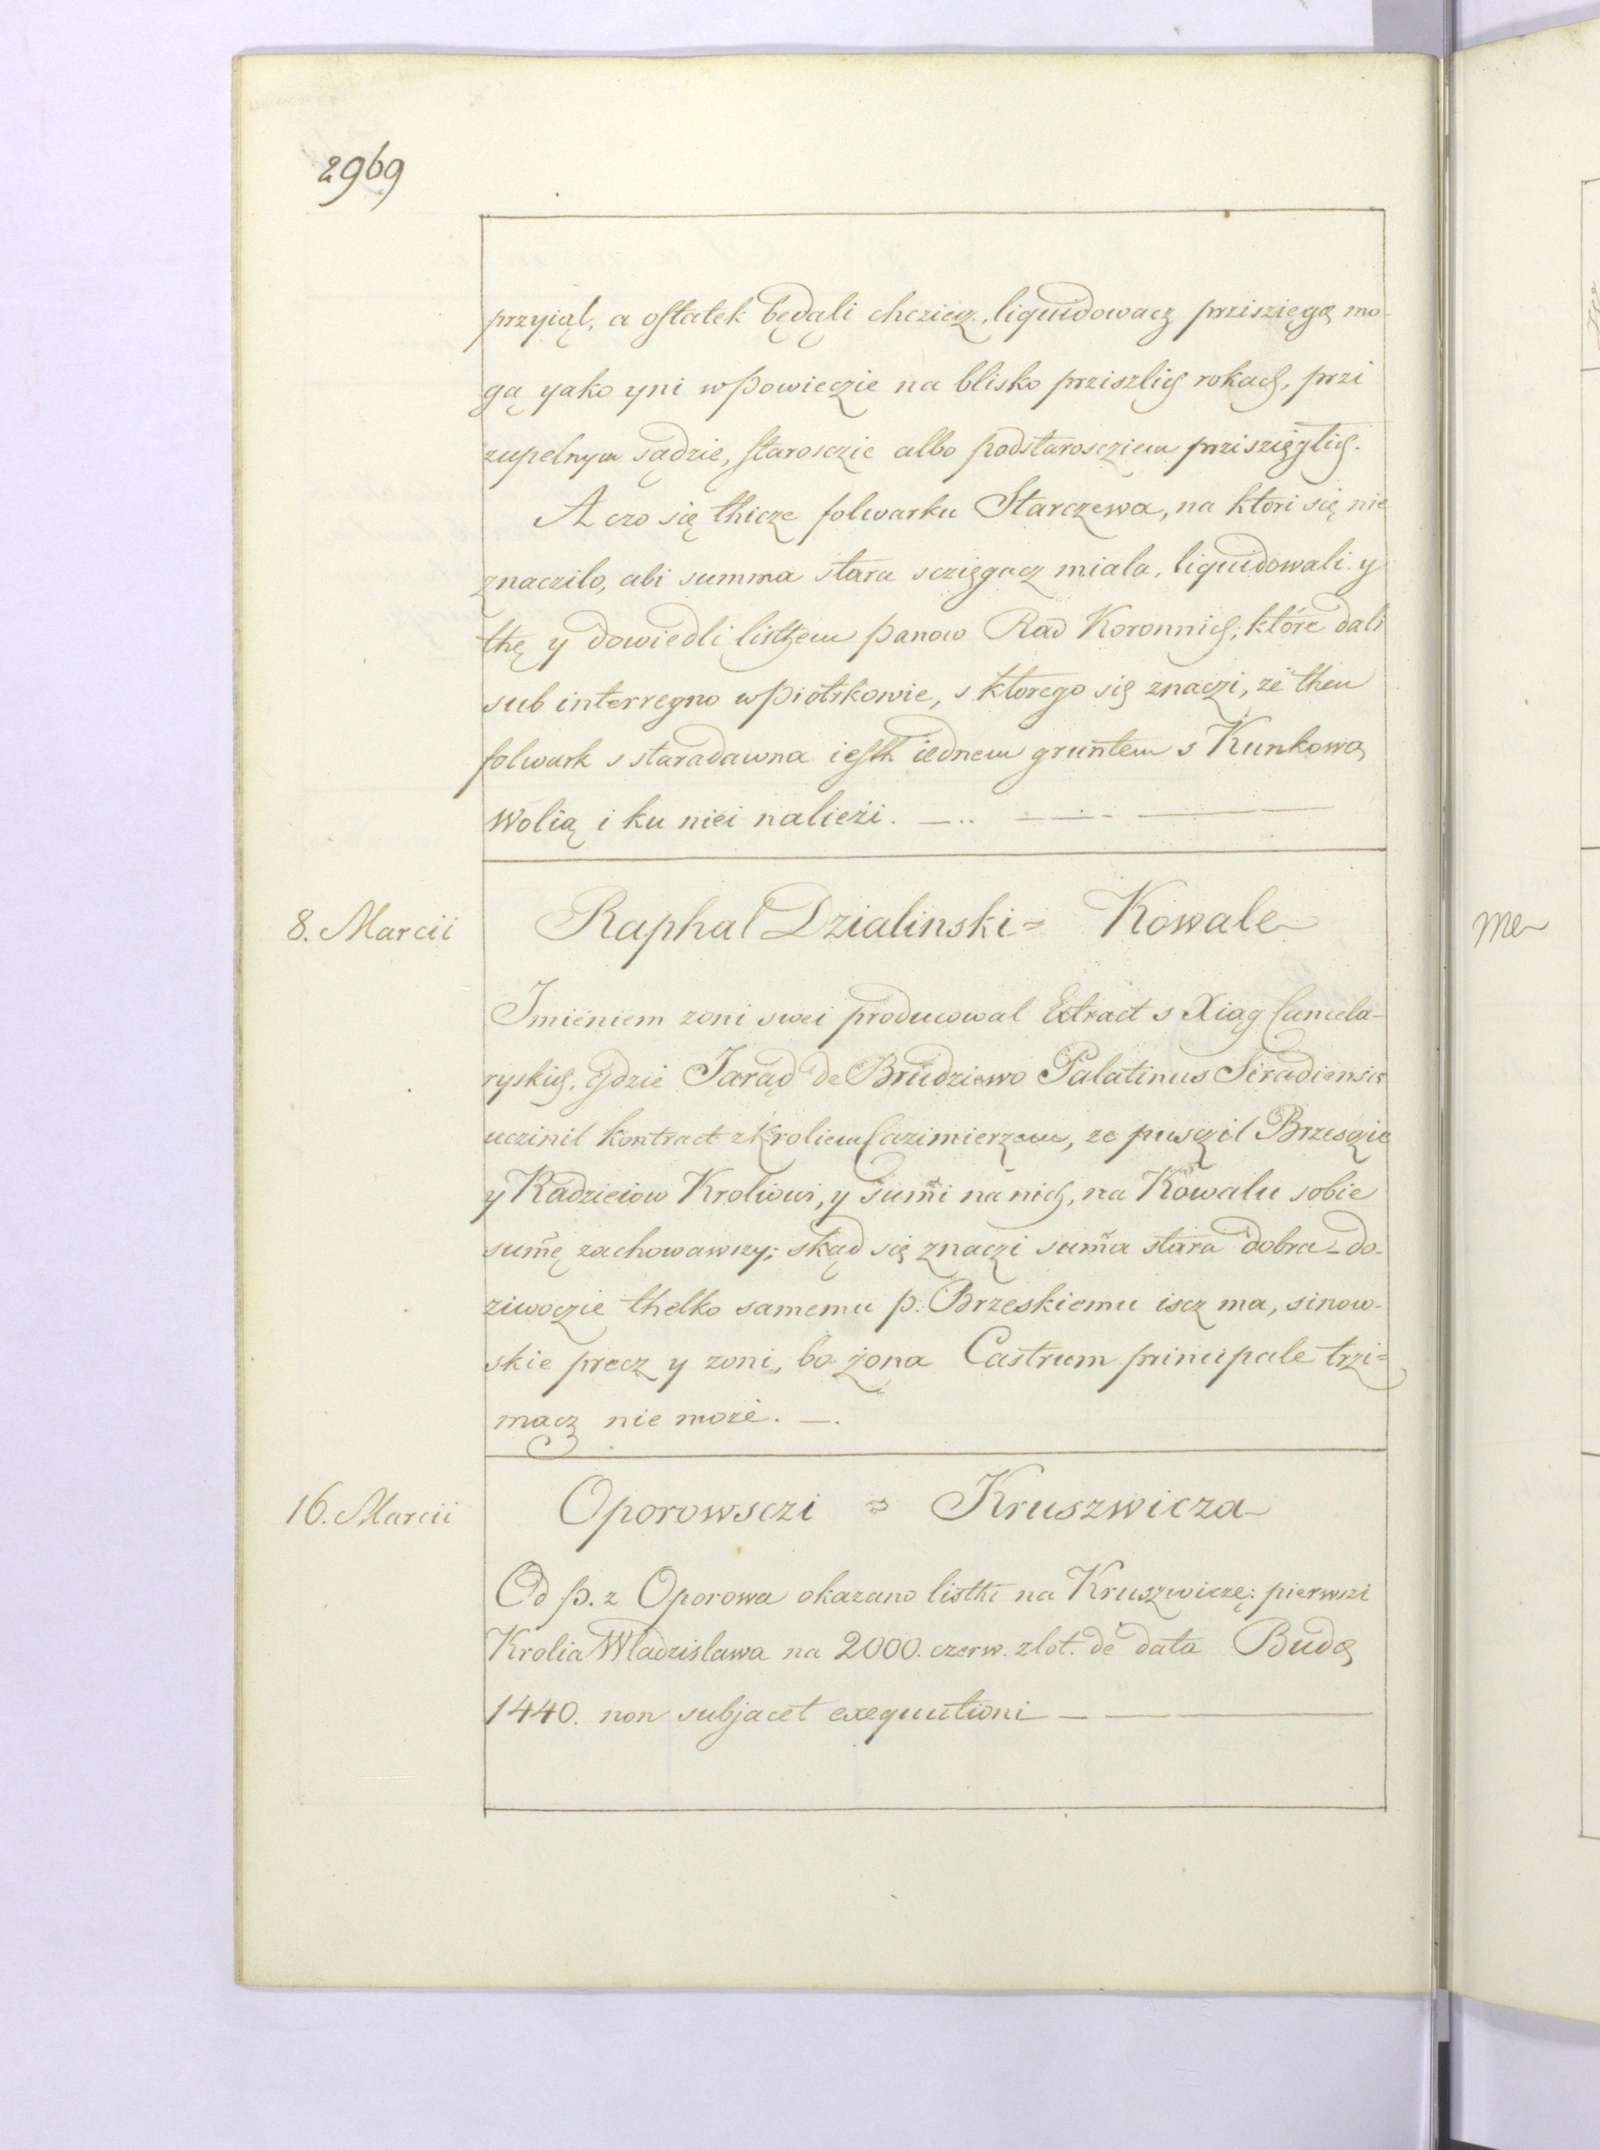 2969
przyiął, a ostatek będąli chcziecz, liquidowacz przisięgą mo-
gą yako yni w powieczie na blisko prziszlich rokach, przi
zupelnym sądzie, starosczie albo podstaroscziem prziszięzlich.
A czo się thicze folwarku Starczewa, na ktori się nie
znacziło, abi summa stara sczięgacz miala, liquidowali y
thę y dowiedli listhem panow Rad Koronnich, które dali
sub interregno w Piotrkowie, s ktorego się znaczi, że then
folwark s staradawna iesth iednem gruntem s Kunkową
Wolią i ku niei należi.
8. Marcii
Raphal Dzialinski = Kowale
Imieniem zoni swei producowal Extract s Xiąg Cancela-
ryskich, gdzie Jarąd de Brudziewo Palatinus Siradiensis
uczinil kontract z Kroliem Cazimierzem, ze pusczil Brzesczie
y Radzieiow Kroliowi, y summi na nich, na Kowalu sobie
summę zachowawszy; skąd się znaczi summa stara dobra do-
ziwoczie thelko samemu p. Brzeskiemu iscz ma, sinow-
skie precz y zoni, bo żona Castrum principale trzi=
macz nie może.
16. Marcii
Oporowsczi = Kruszwicza
Od p. z Oporowa okazano listhi na Kruszwiczę: pierwszi
Krolia Wladzislawa na 2000. czerw. zlot. de data Budę
1440. non subjacet exequutioni
me